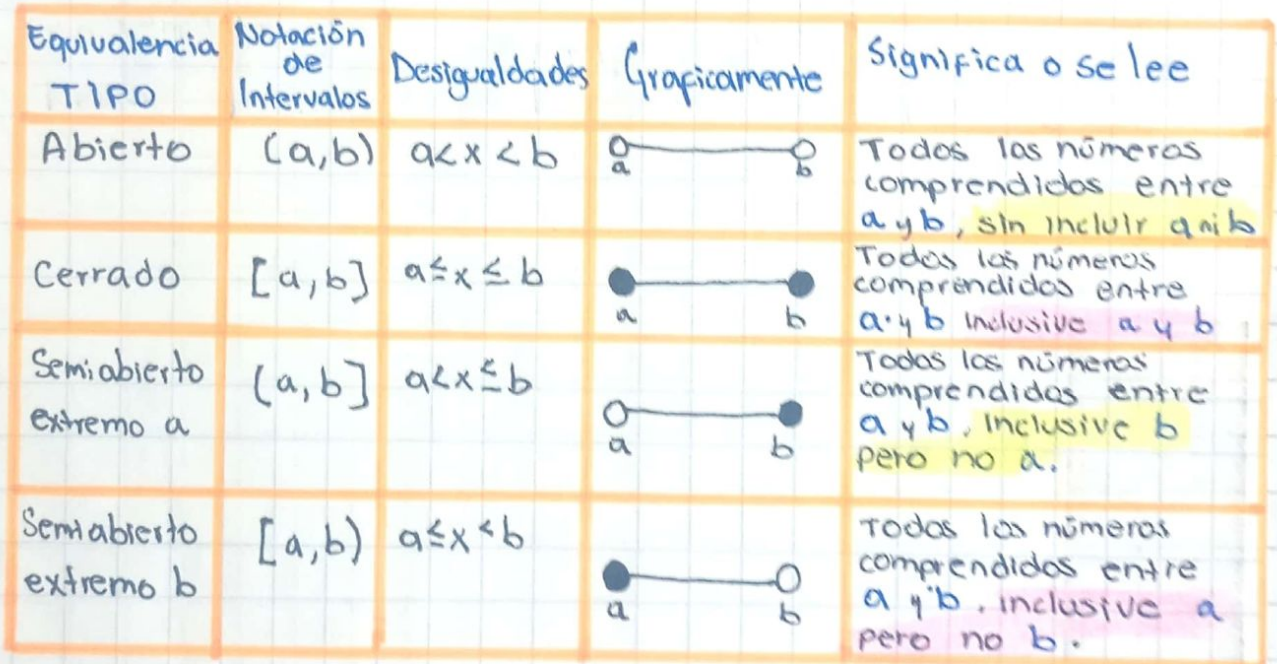 Equivalencia TIPO
Notación de Intervalos
Desigualdades
Graficamente
Significa o se lee
Abierto
(a,b)
a<x<b
a
b
Todos los números
comprendidos entre
a y b, sin incluir a ni b
Cerrado
[a,b]
a≤x≤b
a
b
Todos los números
comprendidos entre
a y b inclusive a y b
Semiabierto
extremo a
(a,b]
a<x≤b
a
b
Todos los números
comprendidos entre
a y b, inclusive b
pero no a.
Semiabierto
extremo b
[a,b)
a≤x<b
a
b
Todos los números
comprendidos entre
a y b, inclusive a
pero no b.